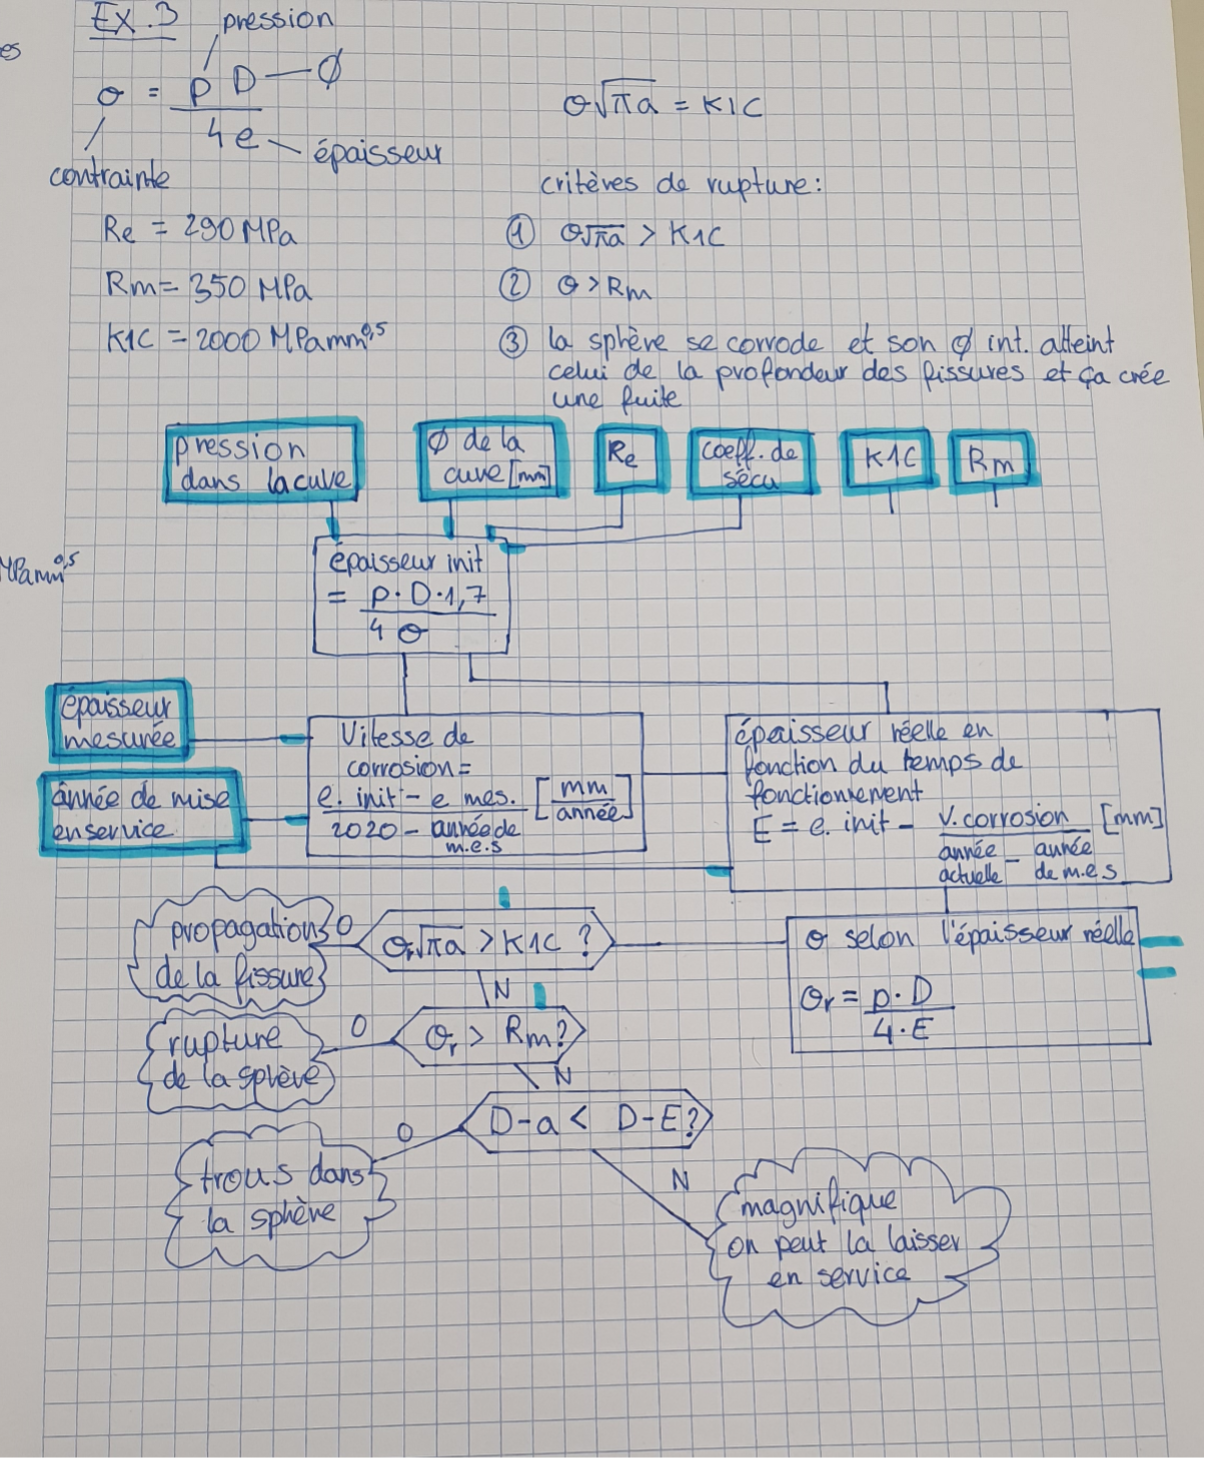 EX.3
pression
es
σ = p D — Ø
4e
épaisseur
contrainte
σ√πa = K1C
critères de rupture:
Re = 290 MPa
① σ√πa > K1C
Rm = 350 MPa
② σ > Rm
K1C = 2000 MPamm^0,5
③ la sphère se corrode et son Ø int. atteint
celui de la profondeur des fissures et ça crée
une fuite
pression
dans la cuve
Ø de la
cuve [mm]
Re
coeff. de
sécu
K1C
Rm
MPamm^0,5
épaisseur init
= p·D·1,7
4 σ
épaisseur
mesurée
année de mise
en service
Vitesse de
corrosion =
e. init - e mes. [mm
2020 - année de année]
m.e.s
épaisseur réelle en
fonction du temps de
fonctionnement
E = e. init - v. corrosion [mm]
année - année
actuelle de m.e.s
propagations
de la fissure
O
σr√πa > K1C ?
σ selon l'épaisseur réelle
σr = p·D
4·E
N
rupture
de la sphère
O
σr > Rm?
N
D-a < D-E?
O
trous dans
la sphère
N
magnifique
on peut la laisser
en service